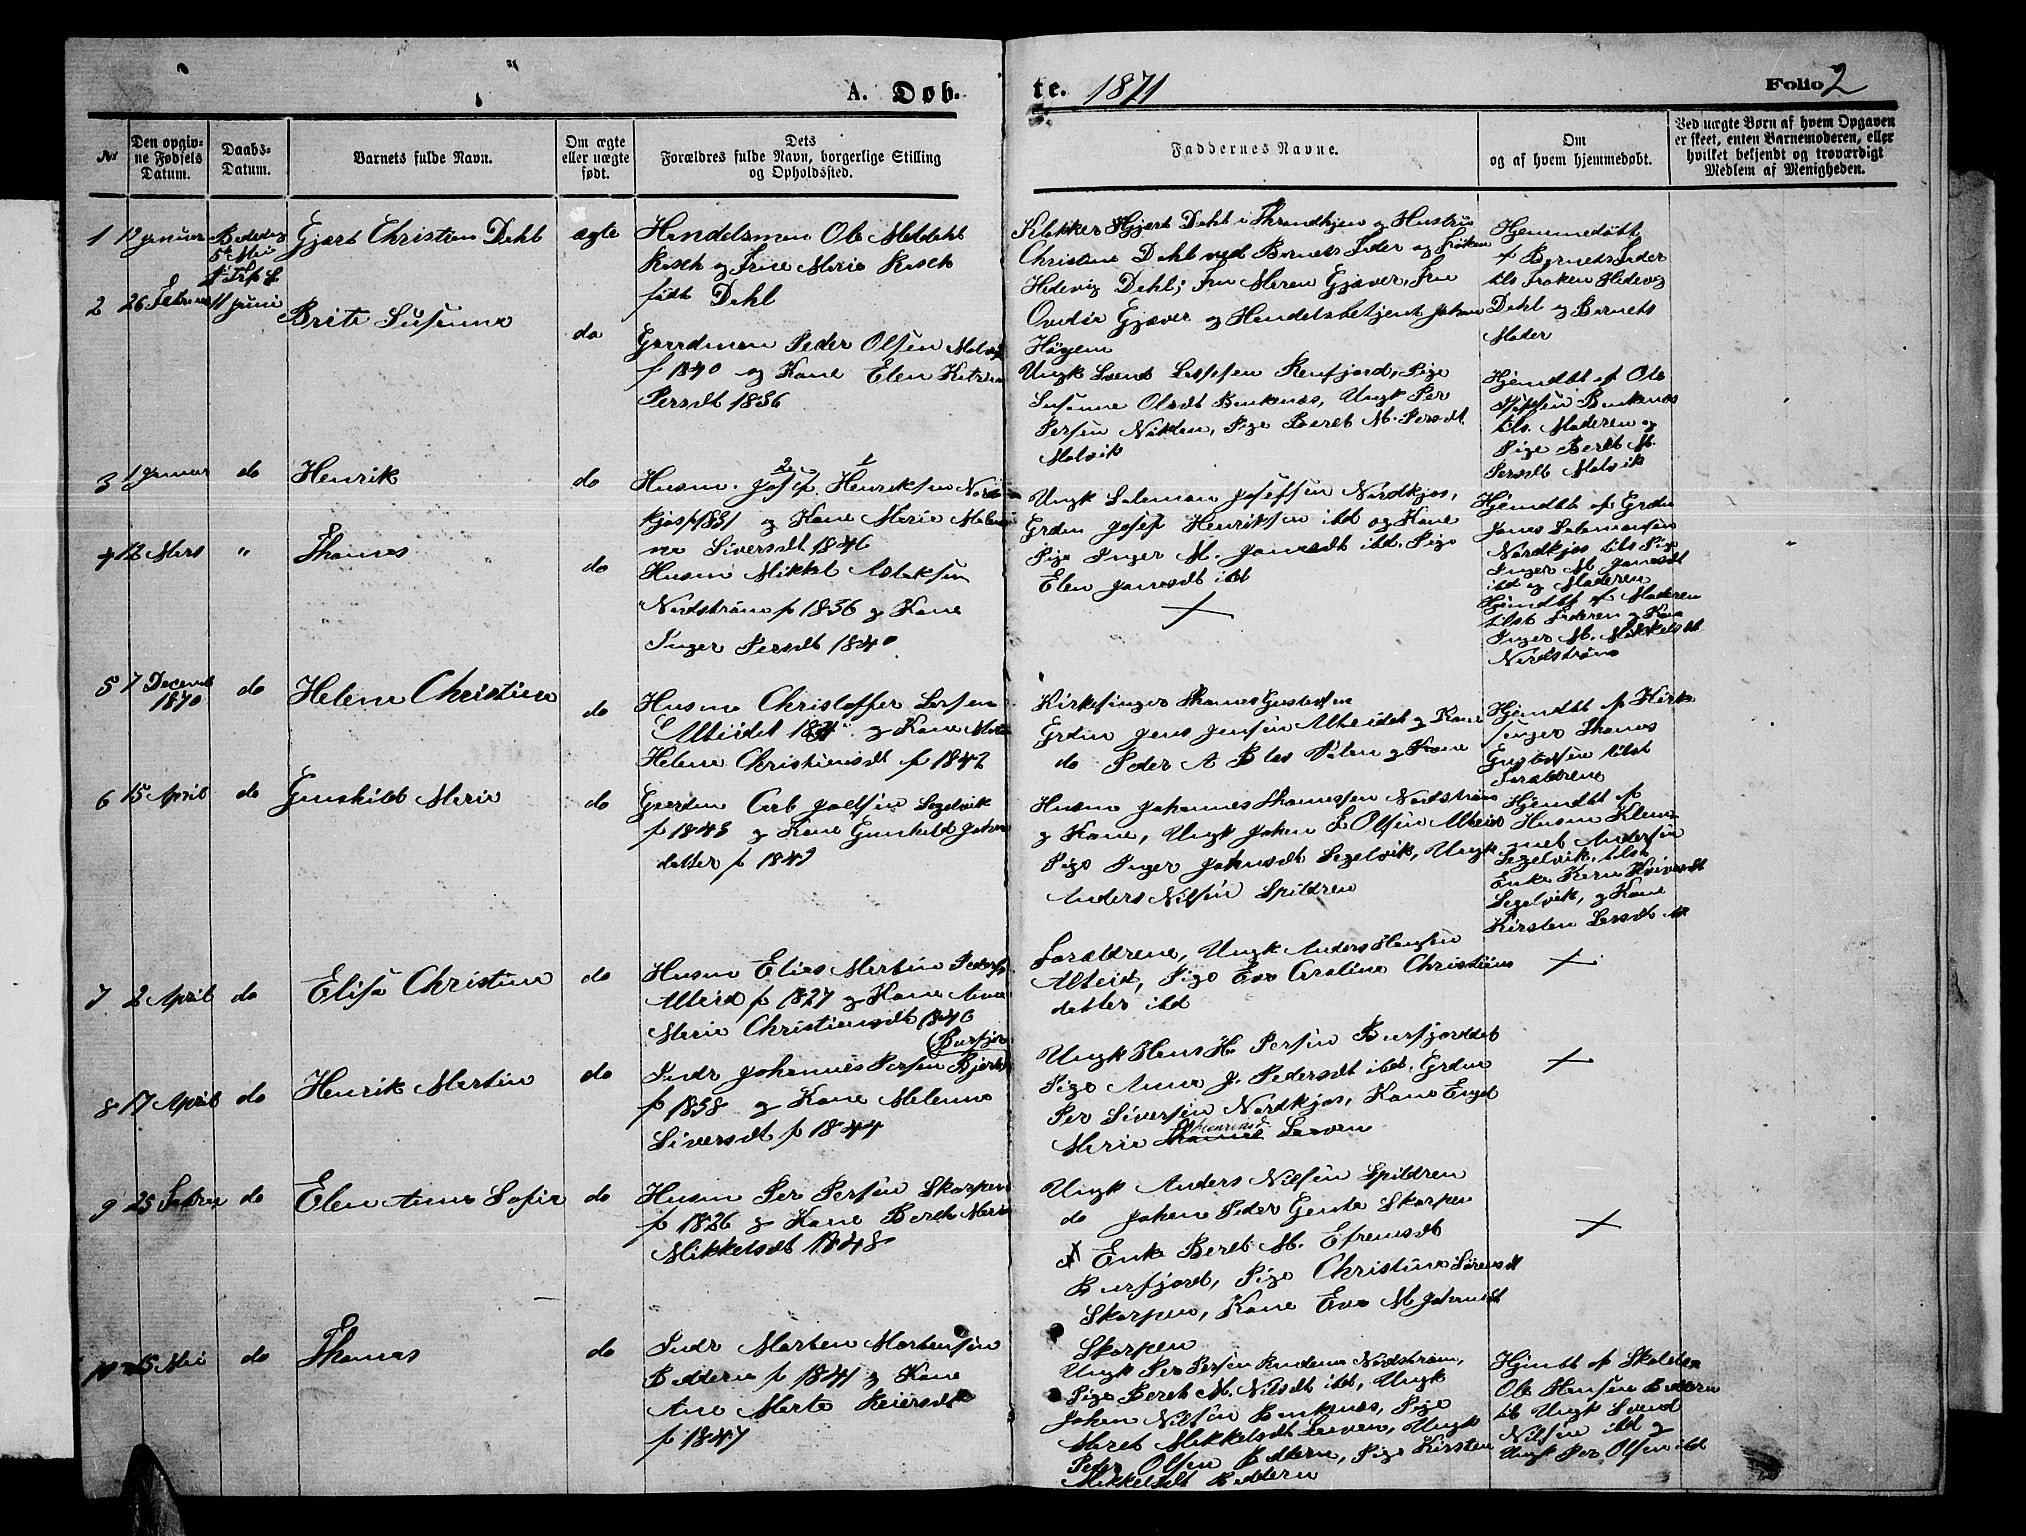 A. Døb-
te. 1871
Folio 2
№
Den opgiv-
ne Fødsels
Datum.
Daabs-
Datum.
Barnets fulde Navn.
Om ægte
eller uægte
født.
Dets
Forældres fulde Navn, borgerlige Stilling
og Opholdssted.
Faddernes Navne.
Om
og af hvem hjemmedøbt.
Ved uægte Børn af hvem Opgaven
er skeet, enten Barnemoderen, eller
hvilket bekjendt og troværdigt
Medlem af Menigheden.
1
12 Januar
5 Mai
Gjært Christian Dahl
ægte
Handelsman Ole Meldahl
Rasch og Frue Marie Rasch
født Dahl
Klokker Hjgært Dahl i Throndhjem og Hustru
Christine Dahl ved Barnets Fader og Frøken
Hedevig Dahl; Fru Maren Gjæver, Fru
Ovidia Gjæver og Handelsbetjent Johan
Høyem
Hjemmedøbt
af Barnets Fader
tils Frøken Hedevig
Dahl og Barnets
Moder
2
26 Februar
11 Juni
Brite Susanna
do
Gaardman Peder Olsen Malvik
f 1840 og Kone Elen Katrina
Persdt 1836
Ungk Svend Larssen Reafjord, Pige
Susanne Olsdt Bankenæs, Ungk Per
Persen Nokten, Pige Beret M. Persdt
Malvik
Hjemdbt af Ole
Bankenæs
tils. Moderen og
Pige Beret M.
Persdt Malvik
3
1 Januar
do
Henrik
do
Husm. Josef Henriksen Nord-
kjos f 1831 og Kone Marie Malen-
ne Siversdt 1846
Ungk Salamon Josefsen Nordkjos,
Grdm Josef Henriksen ibd og Kone
Pige Inger M. Jonasdt ibd. Pige
Elen Jonasdt ibd
Hjemdbt af Grdm
Jonas Salamonsen
Nordkjos tils Pige
Inger M Jonasdt
ibd og Moderen
4
12 Mars
"
Thomas
do
Husm Mikkel Aslaksen
Nordstrøm f 1836 og Kone
Inger Persdt 1840
×
Hjemdbt af Moderen
tilst Faderen og Kone
Inger M. Mikkelsdt
Nordstrøm
5
7 Decemb
1870
do
Helene Christine
do
Husm Christoffer Larsen
Alteidet 1834 og Kone
Helene Christiansdt f 1842
Kirkesanger Thomas Gustafsen
Grdm Jens Jensen Alteidet og Kone
do Peder A Blas Valen og Kone
Hjemdbt af Kirke
sanger Thomas
Gustafsen tilst
Forældrene
6
15 April
do
Gunhild Marie
do
Gaardm Carl Joelsen Segelvik
f 1843 og Kone Gunhild Johans
datter f 1849
Husm Johannes Thomassen Nordstrøm
og Kone, Ungk Johan E Olsen Alteid
Pige Inger Johansdt Segelvik, Ungk
Anders Nilsen Spildren
Hjemdbt af
Husm Klem-
met Andersen
Segelvik, tilst
Enke Karn
Segelvik, og Kone
Kirsten Larsdt
7
2 April
do
Elisa Christine
do
Husm Elias Martin Peders
Alteid f 1827 og Kone Anne
Marie Christiansdt 1840
Forældrene, Ungk Anders Hansen
Alteid, Pige Eva Caroline Christians
datter ibd
×
8
17 April
do
Henrik Martin
do
(Burfjor
Indr Johannes Persen
f 1838 og Kone Malenna
Siversdt f 1844
Ungk Hans H. Persen Burfjordet
Pige Anna J. Pedersdt ibd. Grdm
Per Siversen Nordkjos, Kone Engel
Marie Leeven
×
9
25 Februar
do
Elen Anne Sofie
do
Husm Per Persen Skarpen
f 1826 og Kone Beret Maria
Mikkelsdt 1848
Ungk Anders Nilsen Spildren
do Johan Peder Skarpen
Enke Beret M. Efremsdt
Burfjord, Pige Christine Sørensdt
Skarpen, Kone Eva M Johansdt
Skarpen
×
10
15 Mai
do
Thomas
do
Indr Morten Mortensen
Baddern f 1841 og Kone
Ane Marta Reiersdt
f 1847
Ungk Per Persen Nordstrøm,
Pige Beret M. Nilsdt ibd, Ungk
Johan Nilsen Bankenæs, Pige
Maret Mikkelsdt Leeven, Ungk
Peder Olsen Baddern, Pige Kirsten
Mikkelsdt Baddern
Hjemdbt af Skolelær
Ole Hansen Baddern
til Ungk Svend
Nilsen ibd og
Ungk Per Olsen ibd